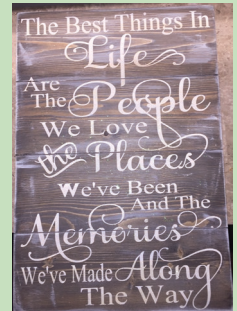 The Best Things In
Life
Are
The People
We Love
the Places
We've Been
And The
Memories
We've Made Along
The Way